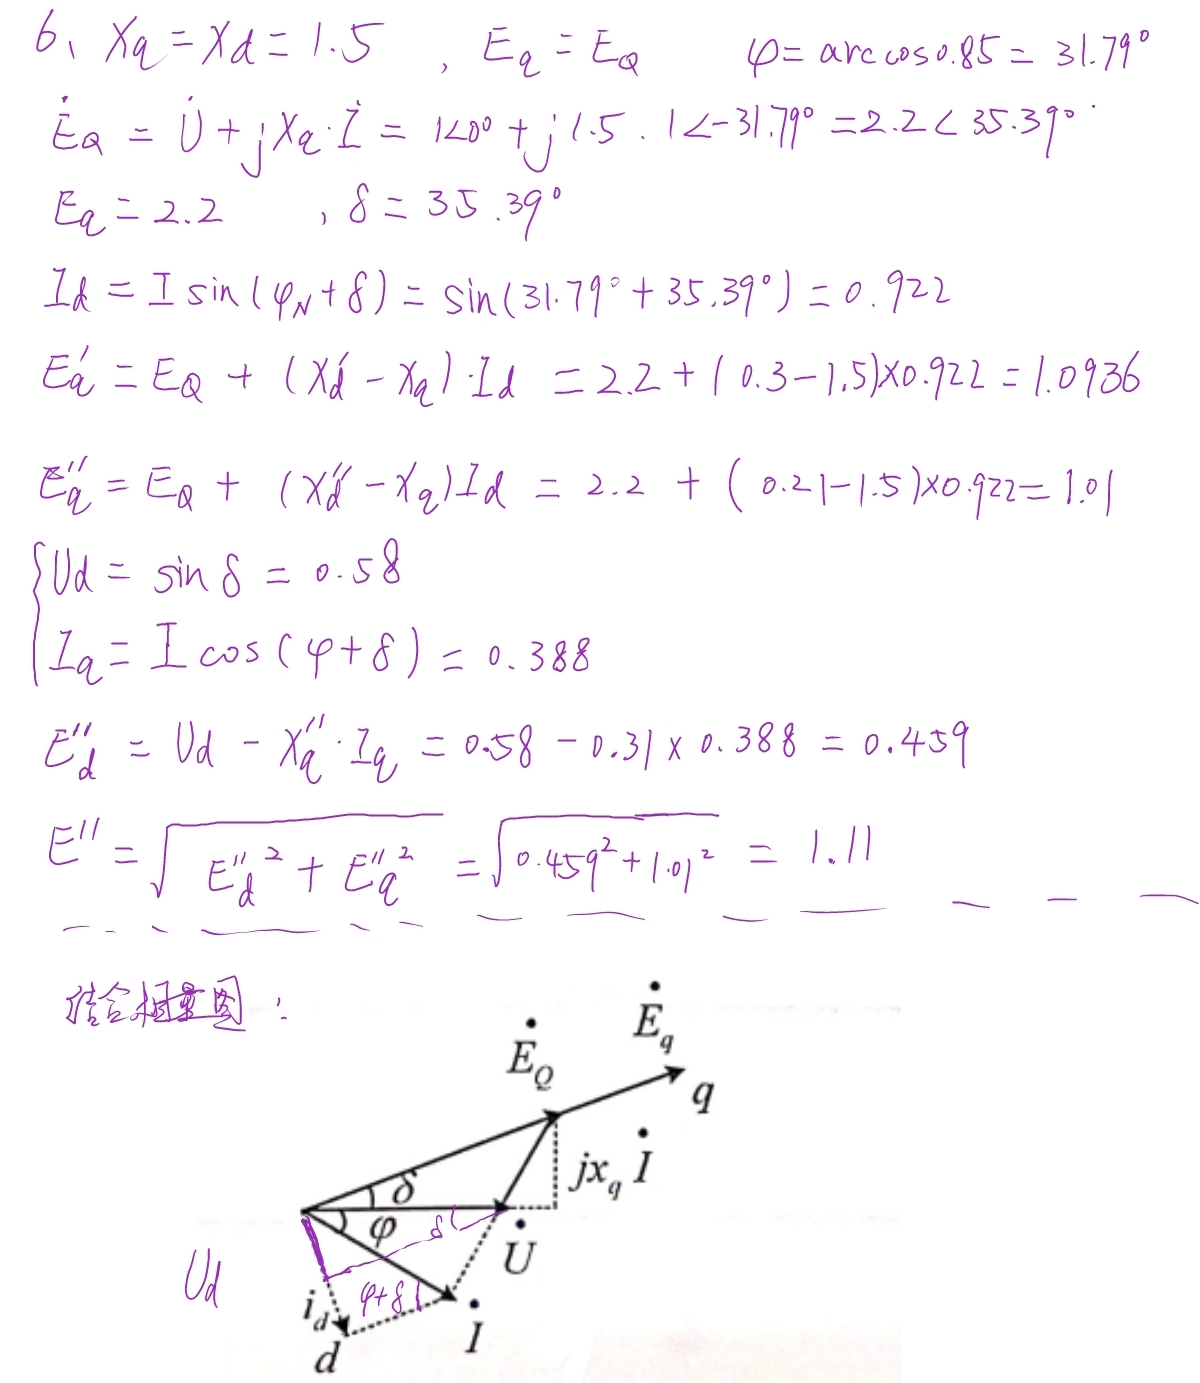 6、Xq = Xd = 1.5 , Eq = EQ φ = arccos0.85 = 31.79°
ĖQ = U̇ + jXq·İ = 1∠0° + j1.5·1∠-31.79° = 2.2∠35.39°
Eq = 2.2 , δ = 35.39°
Id = I sin(φN+δ) = sin(31.79°+35.39°) = 0.922
Eq' = EQ + (Xd'-Xq)·Id = 2.2+(0.3-1.5)×0.922 = 1.0936
Eq'' = EQ + (Xd''-Xq)Id = 2.2 + (0.21-1.5)×0.922 = 1.01
{Ud = sin δ = 0.58
Iq = I cos(φ+δ) = 0.388
Ed'' = Ud - Xq''·Iq = 0.58 - 0.31 × 0.388 = 0.459
E'' = √(Ed''² + Eq''²) = √(0.459²+1.01²) = 1.11
结合相量图:
Ėq
ĖQ
q
jxq İ
δ
φ
δ
U̇
Ud
φ+δ
id
İ
d